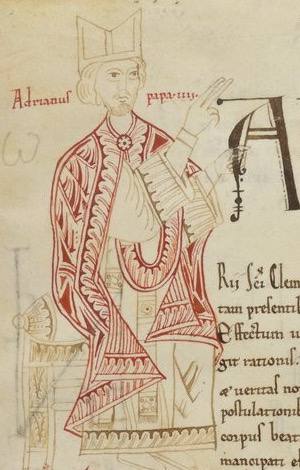 Adrianus papa·iiii·
A
Rij sci Clem
tam presentib
Effectum u
git rationis.
æ ueritas no
postulationib
corpus beat
mancipati et